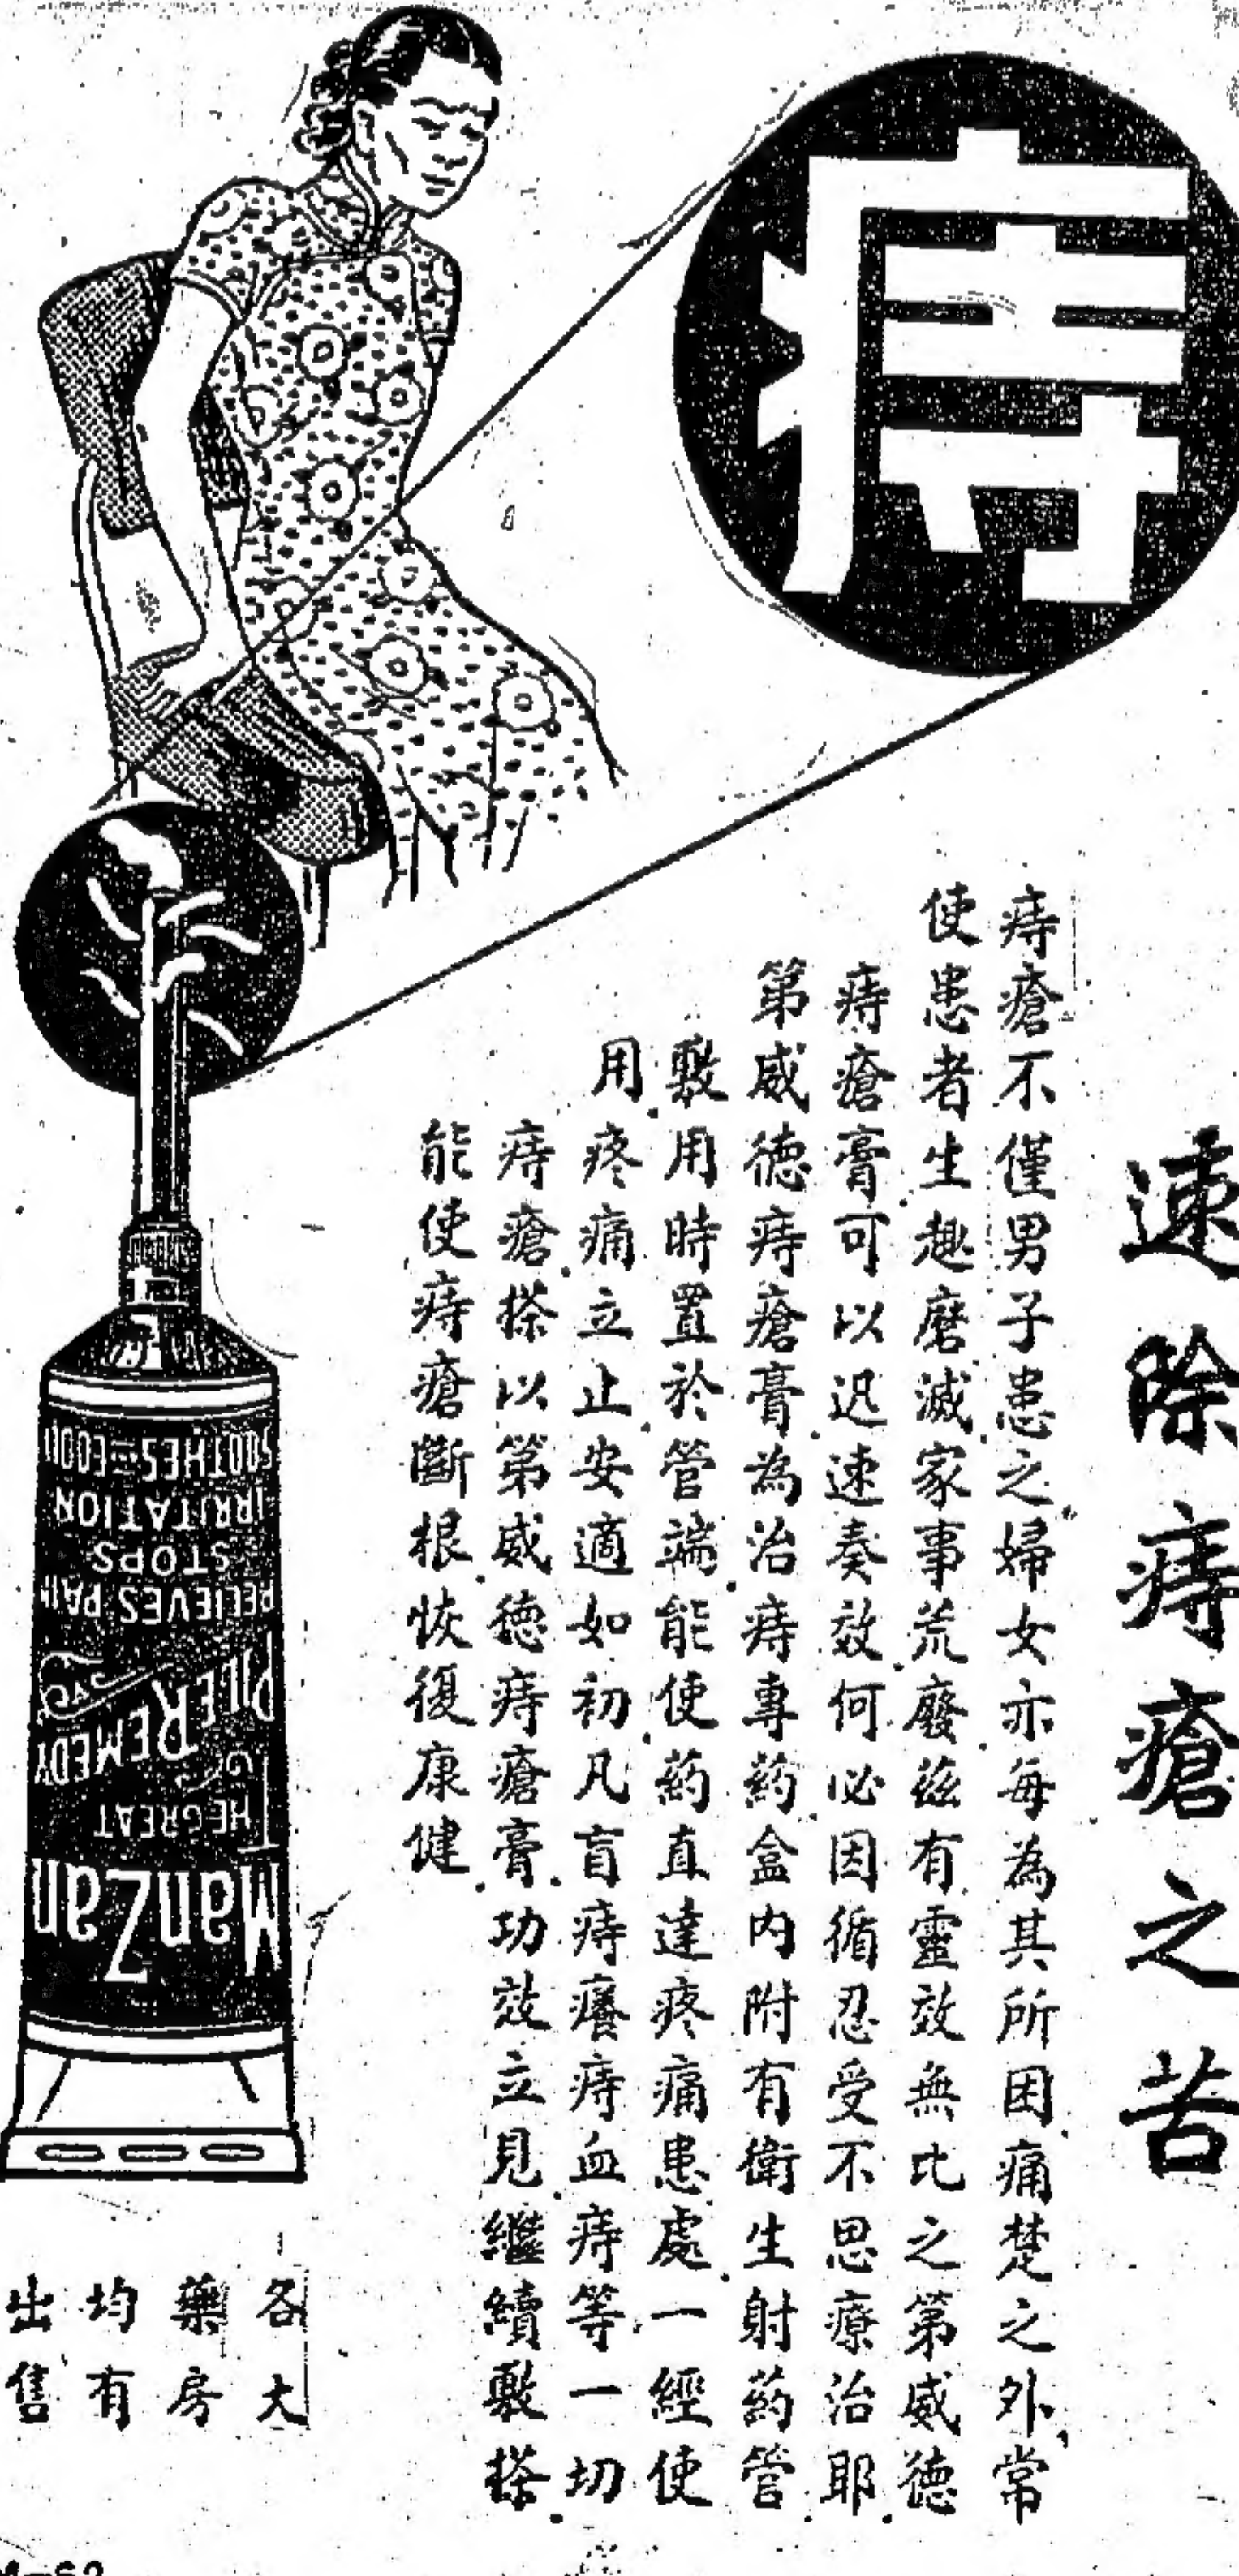 痔
速除痔瘡之苦
痔瘡不僅男子患之婦女亦每為其所困痛楚之外常
使患者生趣磨滅家事荒廢茲有靈效無比之第威德
痔瘡膏可以迅速奏效何必因循忍受不思療治耶
第威德痔瘡膏為治痔專药盒内附有衛生射药管
敷用時置於管端能使药直達疼痛患處一經使
用疼痛立止安適如初凡盲痔癢痔血痔等一切
痔瘡搽以第威德痔瘡膏功效立見繼續敷搽
能使痔瘡斷根恢復康健
ManZan
THE GREAT
PILE REMEDY
RELIEVES PAIN
STOPS
IRRITATION
SOOTHES
各大
藥房
均有
出售